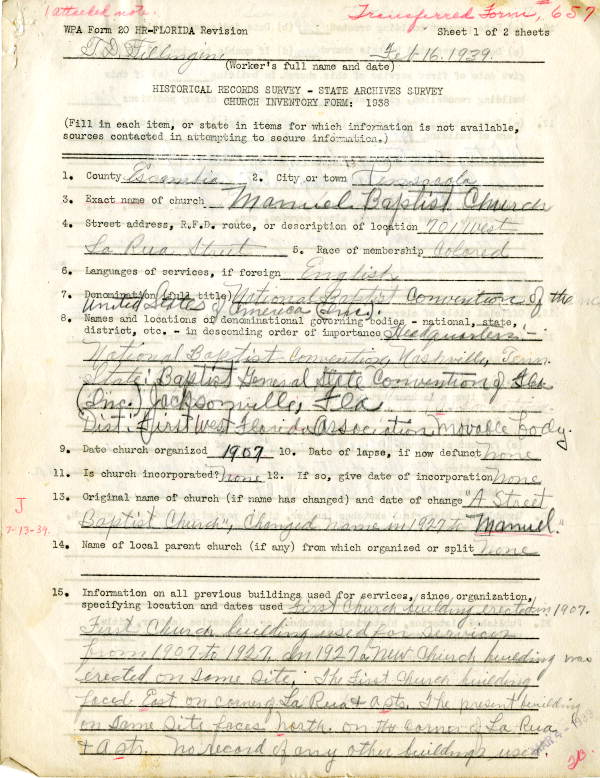 1 attached note. Transferred Form, # 657
WPA Form 20 HR-FLORIDA Revision Sheet 1 of 2 sheets
Feb. 16. 1939.
(Worker's full name and date)
HISTORICAL RECORDS SURVEY - STATE ARCHIVES SURVEY
CHURCH INVENTORY FORM: 1938
(Fill in each item, or state in items for which information is not available,
sources contacted in attempting to secure information.)
1. County Escambia 2. City or town Pensacola
3. Exact name of church Manuel Baptist Church
4. Street address, R.F.D. route, or description of location 701 West
La Rua Street 5. Race of membership Colored
6. Languages of services, if foreign English
7. Denomination (full title) National Baptist Convention of the
United States of America (Inc.)
8. Names and locations of denominational governing bodies - national, state,
district, etc. - in descending order of importance Headquarters:-
National Baptist Convention, Nashville, Tenn.
State: Baptist General State Convention of Fla
(Inc.) Jacksonville, Fla
Dist. First West Florida Association Movable body.
9. Date church organized 1907 10. Date of lapse, if now defunct None
11. Is church incorporated? None 12. If so, give date of incorporation None
13. Original name of church (if name has changed) and date of change "A Street
Baptist Church", Changed name in 1927 to Manuel."
J
7-13-39.
14. Name of local parent church (if any) from which organized or split None
15. Information on all previous buildings used for services, since organization,
specifying location and dates used First Church building erected in 1907.
First Church building used for services
from 1907 to 1927. In 1927 a New Church building was
erected on same site. The First Church building
faced East on corner of La Rua & A sts. The present building
on same site faces North. on the corner of La Rua
& A sts. No record of any other buildings used.